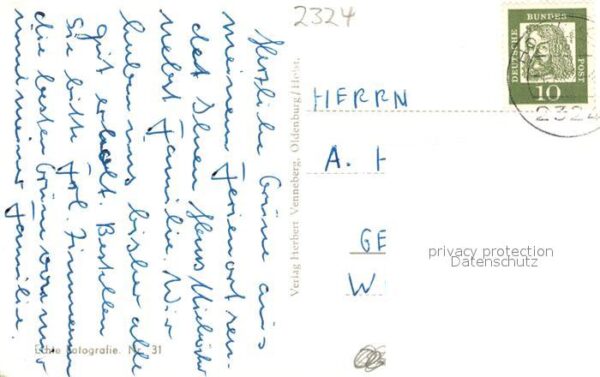 Herzliche Grüße aus
meinem Ferienort sen-
det Ihnen
nebst Familie. Wir
haben uns bisher alle
gut erholt. Bestellen
Sie bitte Frl. Zimmermann
die besten Grüße von mir
und meiner Familie.
Echte Fotografie. Nr. 31
Verlag Herbert Venneberg, Oldenburg/Holst.
2324
DEUTSCHE
BUNDES
POST
10
2324
HERRN
A. H
GE
W
privacy protection
Datenschutz